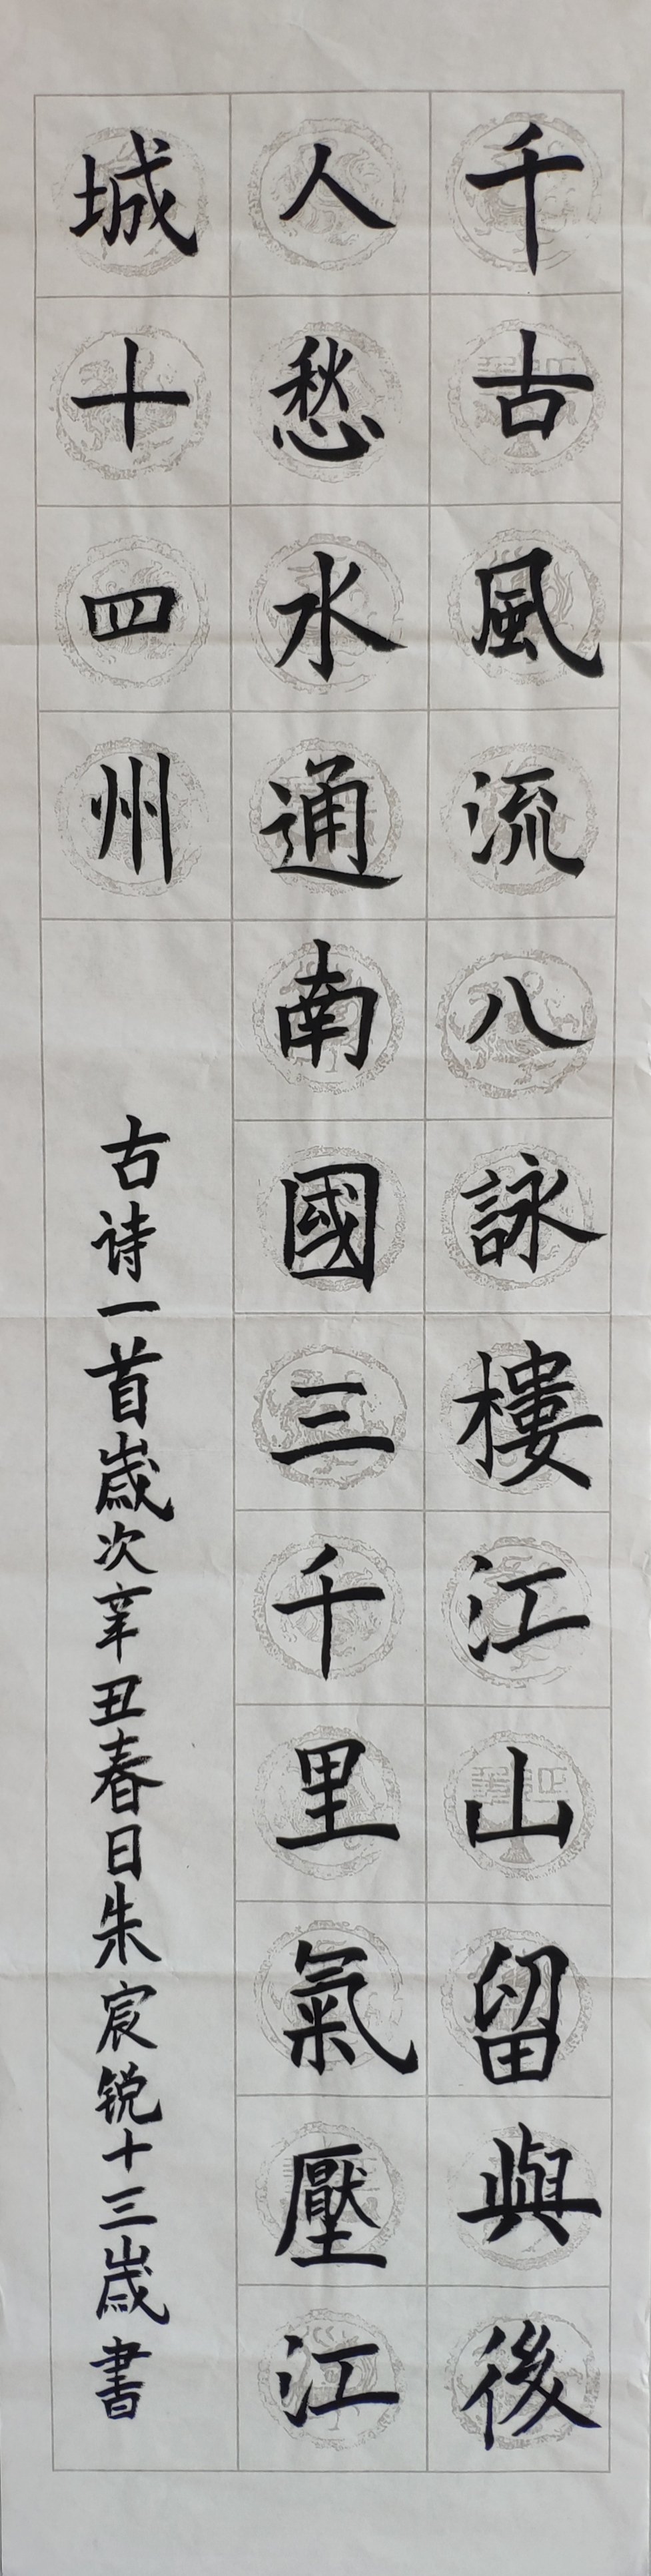 千古風流八詠樓江山留與後
人愁水通南國三千里氣壓江
城十四州
古诗一首歲次辛丑春日朱宸锐十三歲書